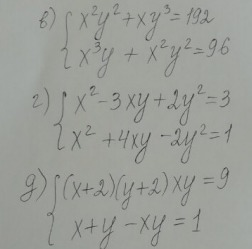 в) { x²y² + xy³ = 192
x³y + x²y² = 96
г) { x² - 3xy + 2y² = 3
x² + 4xy - 2y² = 1
д) { (x+2)(y+2)xy = 9
x + y - xy = 1